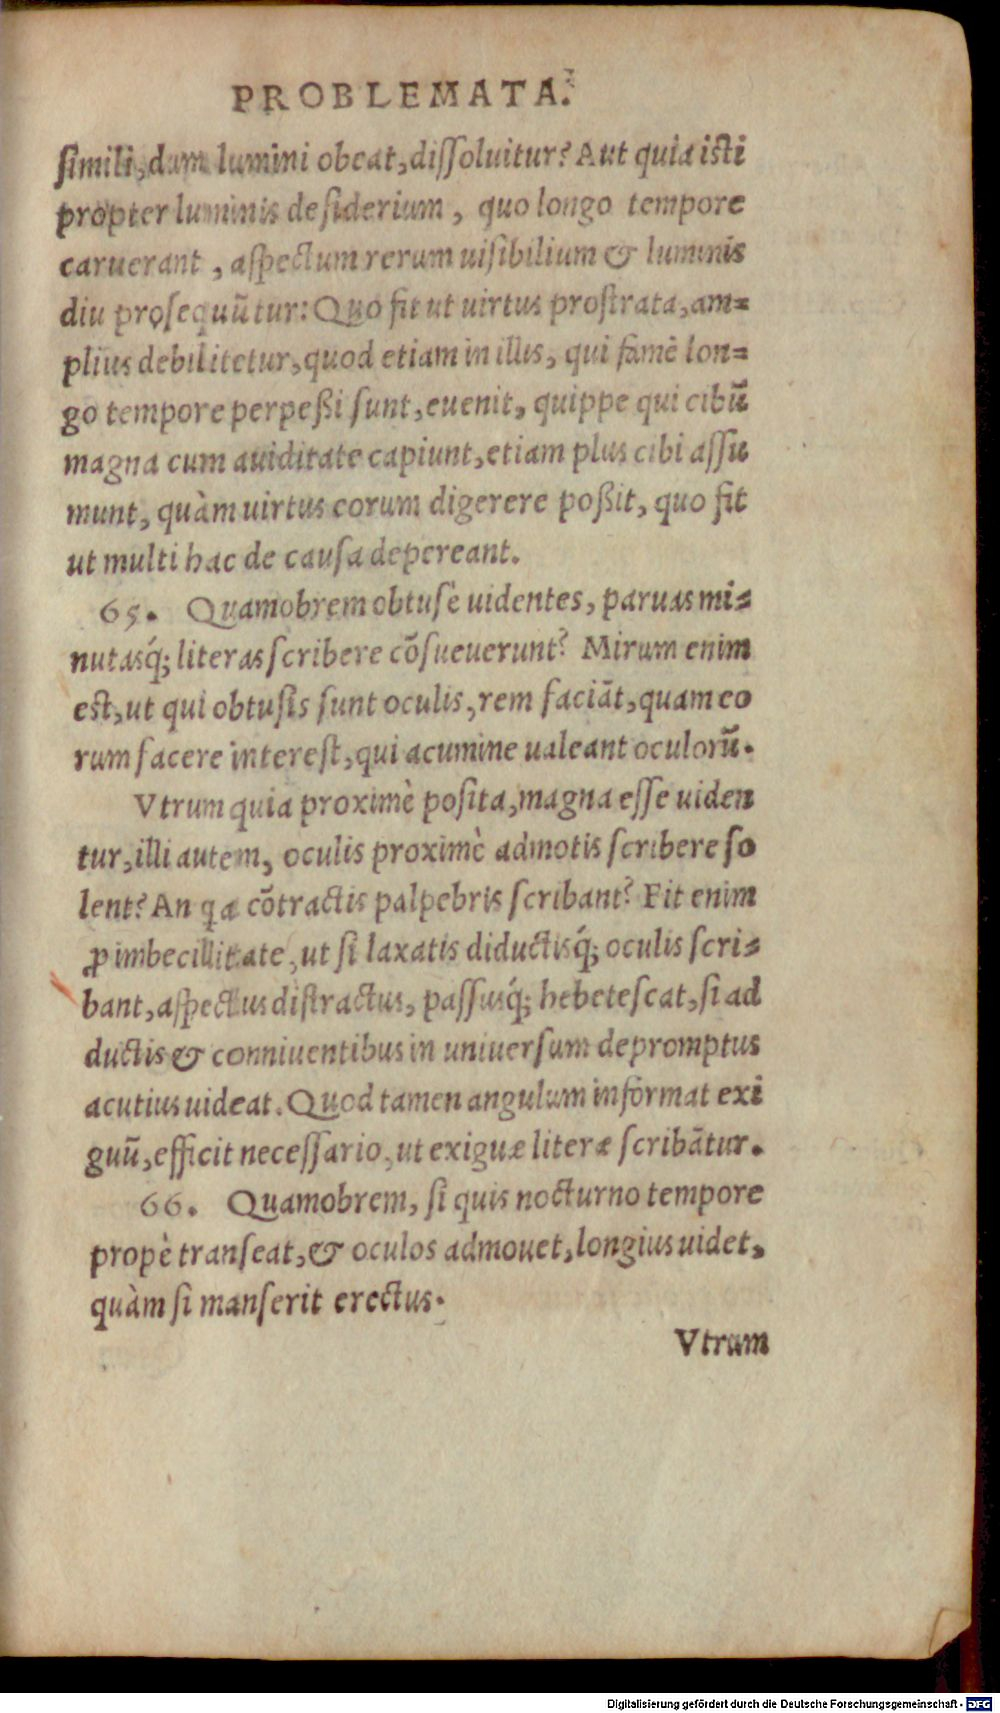 PROBLEMATA.
simili, dum lumini obeat, dissoluitur? Aut quia isti
propter luminis desiderium, quo longo tempore
caruerant, aspectum rerum uisibilium & luminis
diu prosequũtur: Quo fit ut uirtus prostrata, am=
plius debilitetur, quod etiam in illis, qui famē lon=
go tempore perpeßi sunt, euenit, quippe qui cibũ
magna cum auiditate capiunt, etiam plus cibi assu
munt, quàm uirtus eorum digerere poßit, quo fit
ut multi hac de causa depereant.
65. Quamobrem obtusè uidentes, paruas mi=
nutasq́; literas scribere cõsueuerunt? Mirum enim
est, ut qui obtusis sunt oculis, rem faciãt, quam eo
rum facere interest, qui acumine ualeant oculorũ.
Vtrum quia proximè posita, magna esse uiden
tur, illi autem, oculis proximè admotis scribere so
lent? An qa cõtractis palpebris scribant? Fit enim
ꝓ imbecillitate, ut si laxatis diductisq́; oculis scri=
bant, aspectus distractus, passusq́; hebetescat, si ad
ductis & conniuentibus in uniuersum depromptus
acutius uideat. Quod tamen angulum informat exi
guũ, efficit necessario, ut exiguæ literæ scribãtur.
66. Quamobrem, si quis nocturno tempore
propè transeat, & oculos admouet, longius uidet,
quàm si manserit erectus.
Vtrum
Digitalisierung gefördert durch die Deutsche Forschungsgemeinschaft - DFG